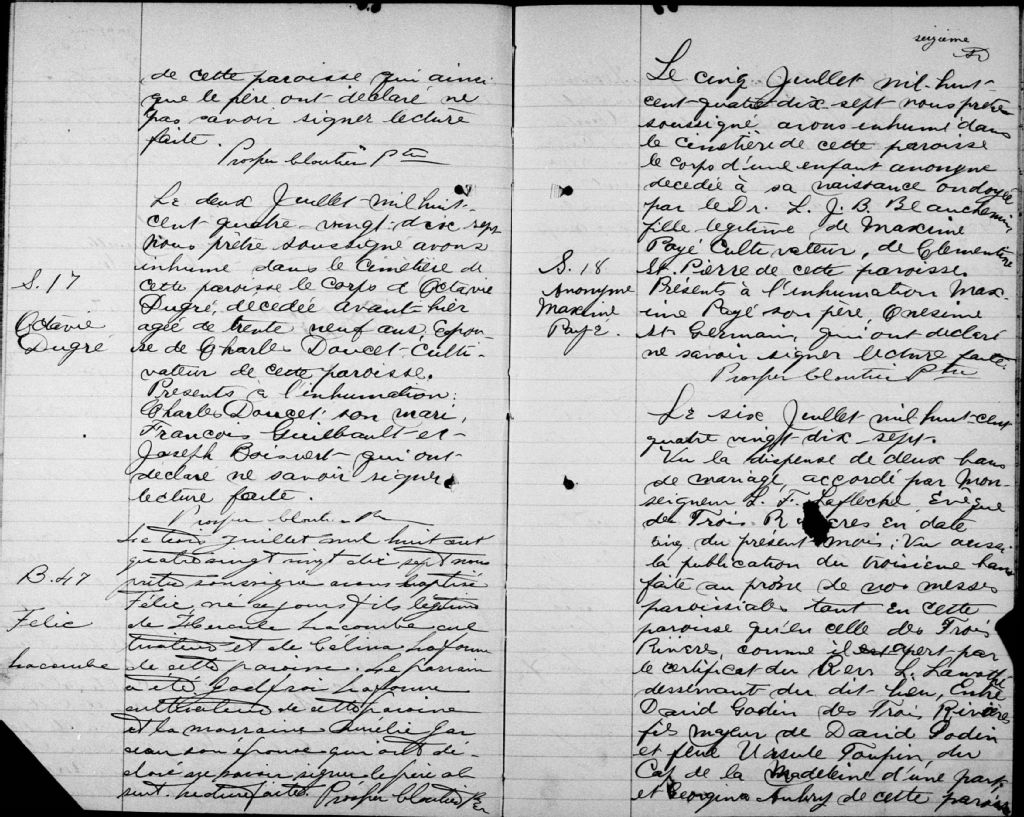 de cette paroisse qui ainsi
que le père ont déclaré ne
pas savoir signer lecture
faite.
Prosper Cloutier Ptre
S. 17
Octavie
Dugré
Le deux Juillet mil huit-
cent quatre-vingt-dix sept
nous prêtre soussigné avons
inhumé dans le cimetière de
cette paroisse le corps d'Octavie
Dugré, décédée avant hier
agée de trente neuf ans, épou-
se de Charles Doucet Culti-
vateur de cette paroisse.
Présents à l'inhumation:
Charles Doucet son mari,
François Guilbault et
Joseph Boisvert qui ont
déclaré ne savoir signer
lecture faite.
Prosper Cloutier Ptre
B. 47
Félix
Lacombe
Le trois juillet mil huit cent
quatre vingt dix sept nous
prêtre soussigné avons baptisé
Félix, né ce jour, fils légitime
de Lacombe cul
tivateur et de Célina
de cette paroisse. Le parrain
a été Godfroi
cultivateur de cette paroisse
et la marraine
son épouse qui ont dé-
claré ne savoir signer le père ab
sent. Lecture faite. Prosper Cloutier Ptre
seizième
S. 18
Anonyme
Maxime
Payé.
Le cinq Juillet mil-huit-
cent-quatre dix-sept nous prêtre
soussigné avons inhumé dans
le cimetière de cette paroisse
le corps d'une enfant anonyme
décédée à sa naissance ondoyée
par le Dr. L. J. B. Beauchemin
fille légitime de Maxime
Payé Cultivateur, de Clementine
St. Pierre de cette paroisse.
Présents à l'inhumation Max-
ime Payé son père, Onésime
St Germain, qui ont déclaré
ne savoir signer lecture faite.
Prosper Cloutier Ptre
Le six Juillet mil huit-cent
quatre vingt-dix-sept.
Vu la dispense de deux bans
de mariage, accordé par Mon-
seigneur L. F. Lafleche Evêque
des Trois Rivières en date
cinq du présent mois; Vu aussi
la publication du troisième ban
faite au prône de nos messes
paroissiales tant en cette
paroisse qu'en celle des Trois
Rivières, comme il est apert par
le certificat du Rév L.
desservant du dit-lieu, Entre
David Godin des Trois Rivières
fils majeur de David Godin
et feue Ursule Toupin, du
Cap de la Madeleine d'une part,
et Georgina Aubry de cette paroisse